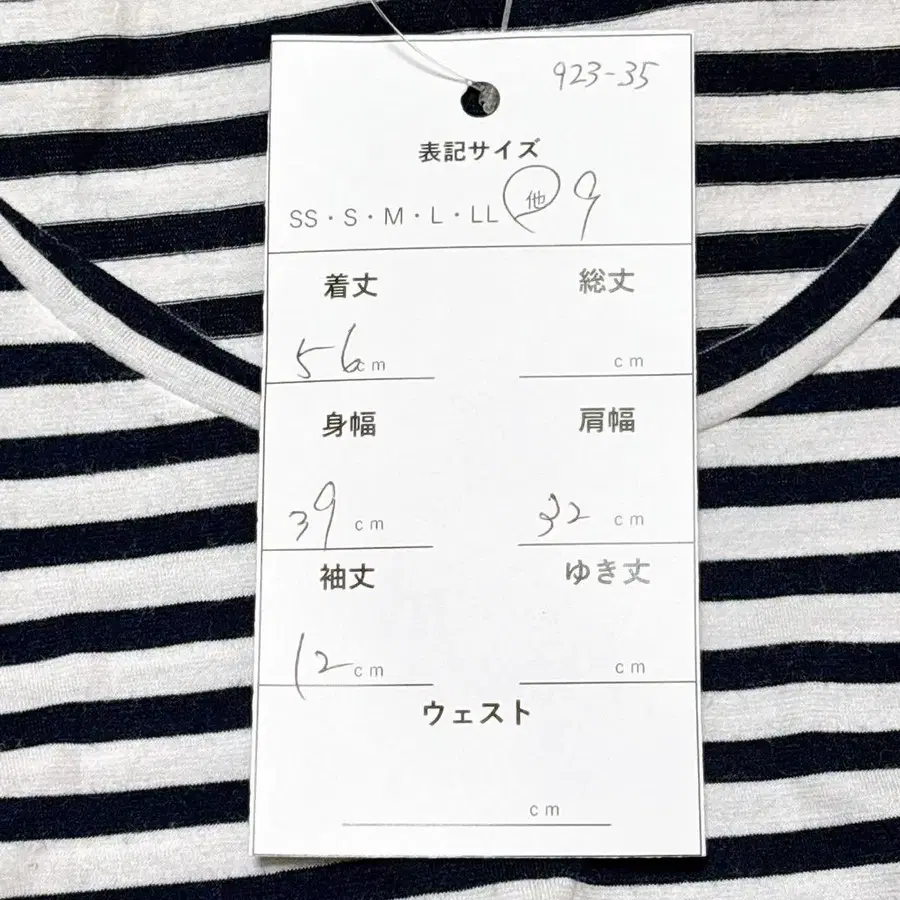 923-35
表記サイズ
SS・S・M・L・LL 他 9
着丈 総丈
56cm cm
身幅 肩幅
39 cm 32 cm
袖丈 ゆき丈
12 cm cm
ウェスト
cm